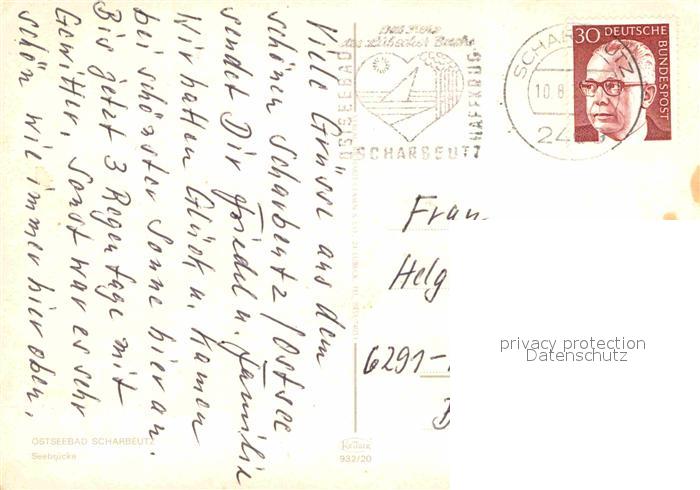 Viele Grüsse aus dem
schönen Scharbeutz/Ostsee
sendet Dir Friedel u. Familie
Wir hatten Glück u. kamen
bei schönster Sonne hier an.
Bis jetzt 3 Regentage mit
Gewitter, sonst war es sehr
schön wie immer hier oben.
OSTSEEBAD SCHARBEUTZ
Seebrücke
932/20
OSTSEEBAD
HAFFKRUG
SCHARBEUTZ
SCHARBEUTZ
10.8
24
30 DEUTSCHE
BUNDESPOST
Frau
Helg
6291-
privacy protection
Datenschutz